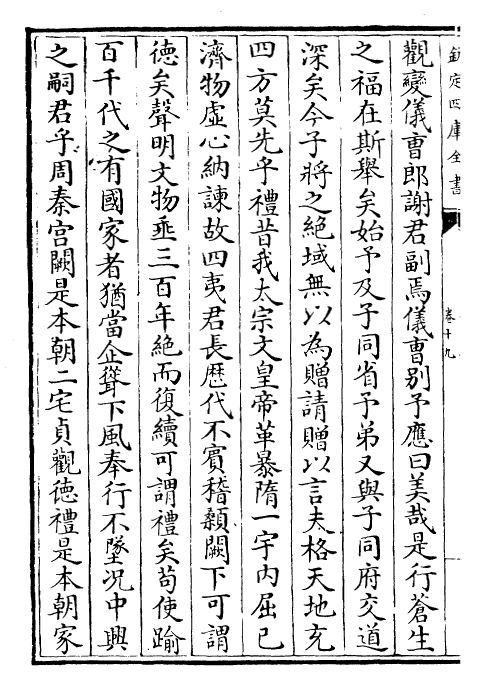 欽定四庫全書
卷十九
觀變儀曹郎謝君副焉儀曹别予應曰美哉是行蒼生
之福在斯舉矣始予及子同省予弟又與子同府交道
深矣今子將之絶域無以為贈請贈以言夫格天地充
四方莫先乎禮昔我太宗文皇帝革暴隋一宇内屈己
濟物虚心納諫故四夷君長歴代不賓稽顙闕下可謂
德矣聲明文物垂三百年絶而復續可謂禮矣苟使踰
百千代之有國家者猶當企聳下風奉行不墜况中興
之嗣君乎周秦宫闕是本朝二宅貞觀德禮是本朝家